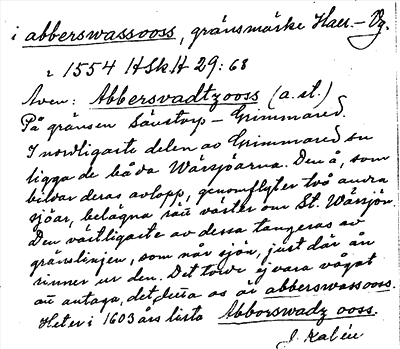 i abberswassooss, gränsmärke Hall.–Vg.
r 1554 HSkH 29: 68
Även: Abbersvadtzooss (a. st.)
På gränsen Sävstorp – Grimmared.
I nordligaste delen av Grimmared sn
ligga de båda Wärsjöarna. Den å, som
bildar deras avlopp, genomflyter två andra
sjöar, belägna rätt väster om St. Wärsjön.
Den västligaste av dessa tangeras av
gränslinjen, som når sjön, just där ån
rinner ur den. Det torde ej vara vågat
att antaga, det detta os är abberswassooss.
Heter i 1603 års lista Abborswadz ooss.
J. Kalén